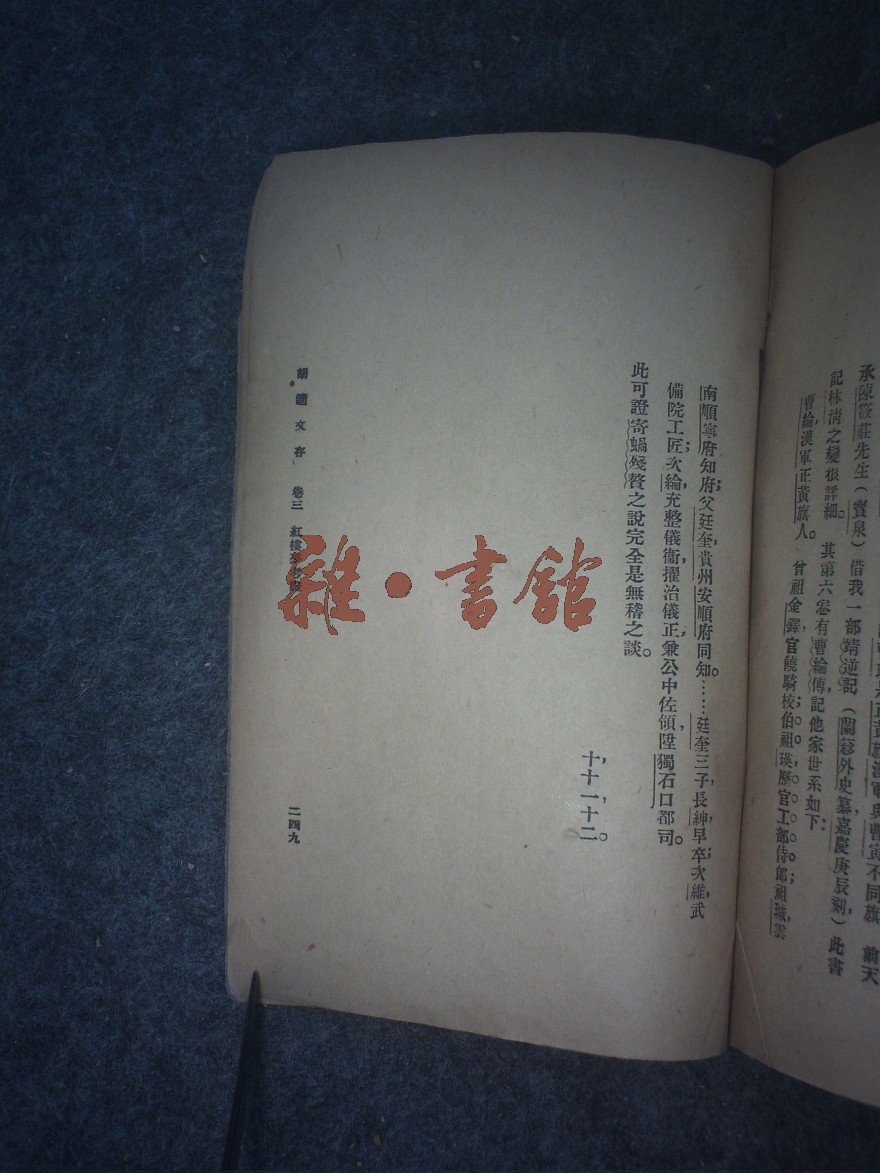 承陳筱莊先生（寶泉）借我一部靖逆記（蘭簃外史纂，嘉慶庚辰刻）此書
記林清之變很詳細。其第六卷有曹綸傳，記他家世系如下：
曹綸，漢軍正黃旗人。曾祖金鐸，官驍騎校；伯祖瑛，歷官工部侍郎；祖瑊，雲
南順寧府知府；父廷奎，貴州安順府同知。……廷奎三子，長紳，早卒；次維，武
備院工匠；次綸，充整儀衞，擢治儀正，兼公中佐領，陞獨石口都司。
此可證寄蝸殘贅之說完全是無稽之談。
十，十一，十二。
胡適文存 卷三 紅樓
二四九
雜·書館